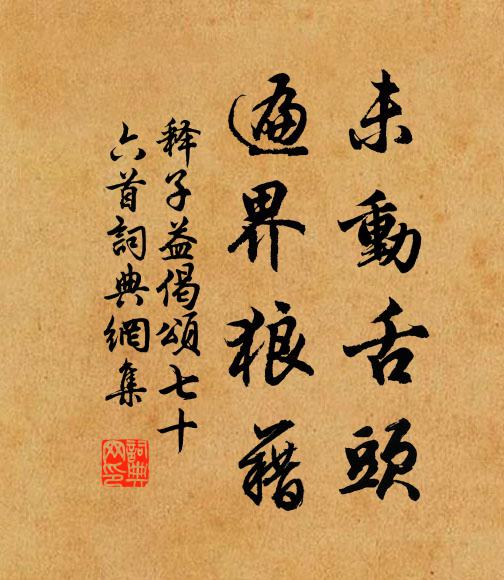 未動舌頭
遍界狼藉
釋子益偈頌七十
六首詞典網集
詞典
网印